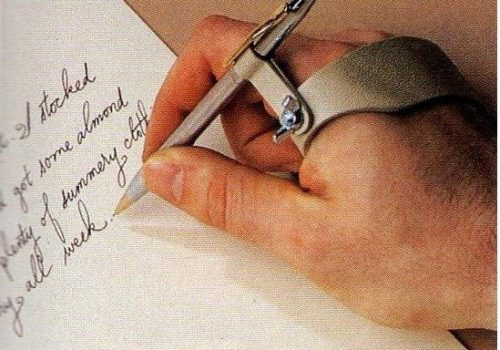 I stocked
got some almond
plenty of summery cloth
all week...